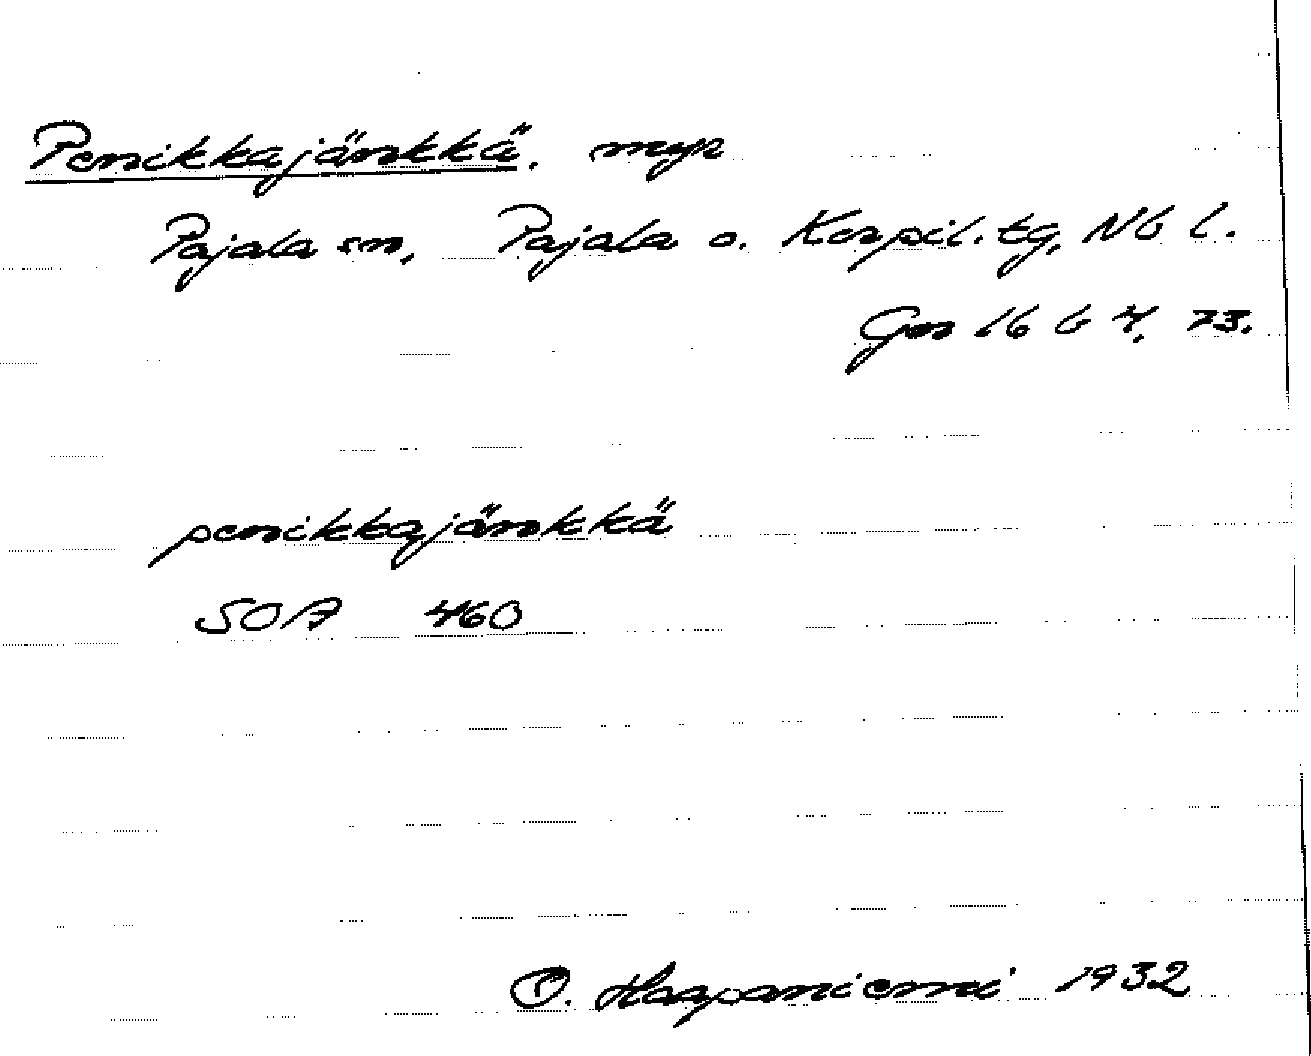 Penikkajänkkä. myr
Pajala sn, Pajala o. Korpil. tg, Nb l.
Gm 16 b 4, 73.
penikkajänkkä
SOA 460
O. Haapaniemi 1932